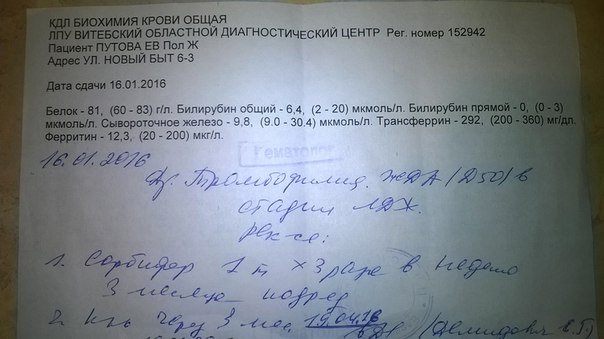 КДЛ БИОХИМИЯ КРОВИ ОБЩАЯ
ЛПУ ВИТЕБСКИЙ ОБЛАСТНОЙ ДИАГНОСТИЧЕСКИЙ ЦЕНТР Рег. номер 152942
Пациент ПУТОВА ЕВ Пол Ж
Адрес УЛ. НОВЫЙ БЫТ 6-3
Дата сдачи 16.01.2016
Белок - 81, (60 - 83) г/л. Билирубин общий - 6,4, (2 - 20) мкмоль/л. Билирубин прямой - 0, (0 - 3)
мкмоль/л. Сывороточное железо - 9,8, (9.0 - 30.4) мкмоль/л. Трансферрин - 292, (200 - 360) мг/дл.
Ферритин - 12,3, (20 - 200) мкг/л.
16.01.2016
Гематолог
Дз. Тромбофилия. ЖДА (D50) в
стадии ЛДЖ.
Рек-се:
1. Сорбифер 1 т × 3 раза в неделю
3 месяца подряд
2. Кон через 3 мес. 19.04.16
(Демидович В.Г.)